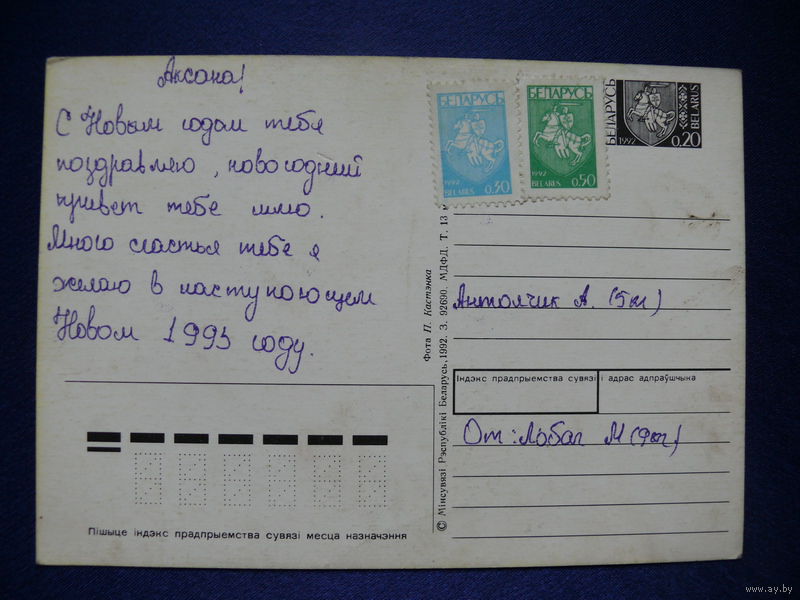 Аксана!
С Новым годом тебя
поздравляю, новогодний
привет тебе шлю.
Много счастья тебе я
желаю в наступающем
Новом 1993 году.
БЕЛАРУСЬ
1992
BELARUS
0.30
БЕЛАРУСЬ
1992
BELARUS
0.50
БЕЛАРУСЬ
1992
0.20
BELARUS
Антончик А. (5кл)
Індэкс прадпрыемства сувязі і адрас адпраўшчыка
От: Лобач М (9кл)
Фота П. Кастэнка
© Мінсувязі Рэспублікі Беларусь, 1992. З. 92690. МДФД. Т. 13
Пішыце індэкс прадпрыемства сувязі месца назначэння
www.ay.by